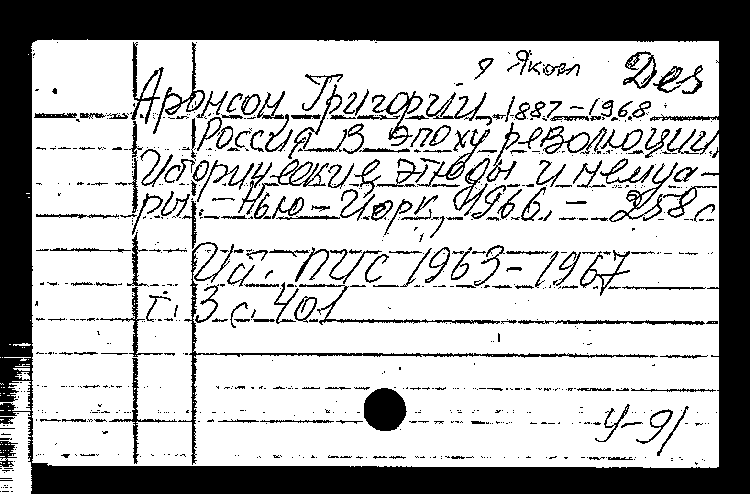 Яковл Des
Аронсон, Григорий, 1887-1968.
Россия в эпоху революции.
Исторические этюды и мемуа-
ры. - Нью-Йорк, 1966. - 258 с
Ист. ПИС 1963-1967
т. 3 с. 401
У-91